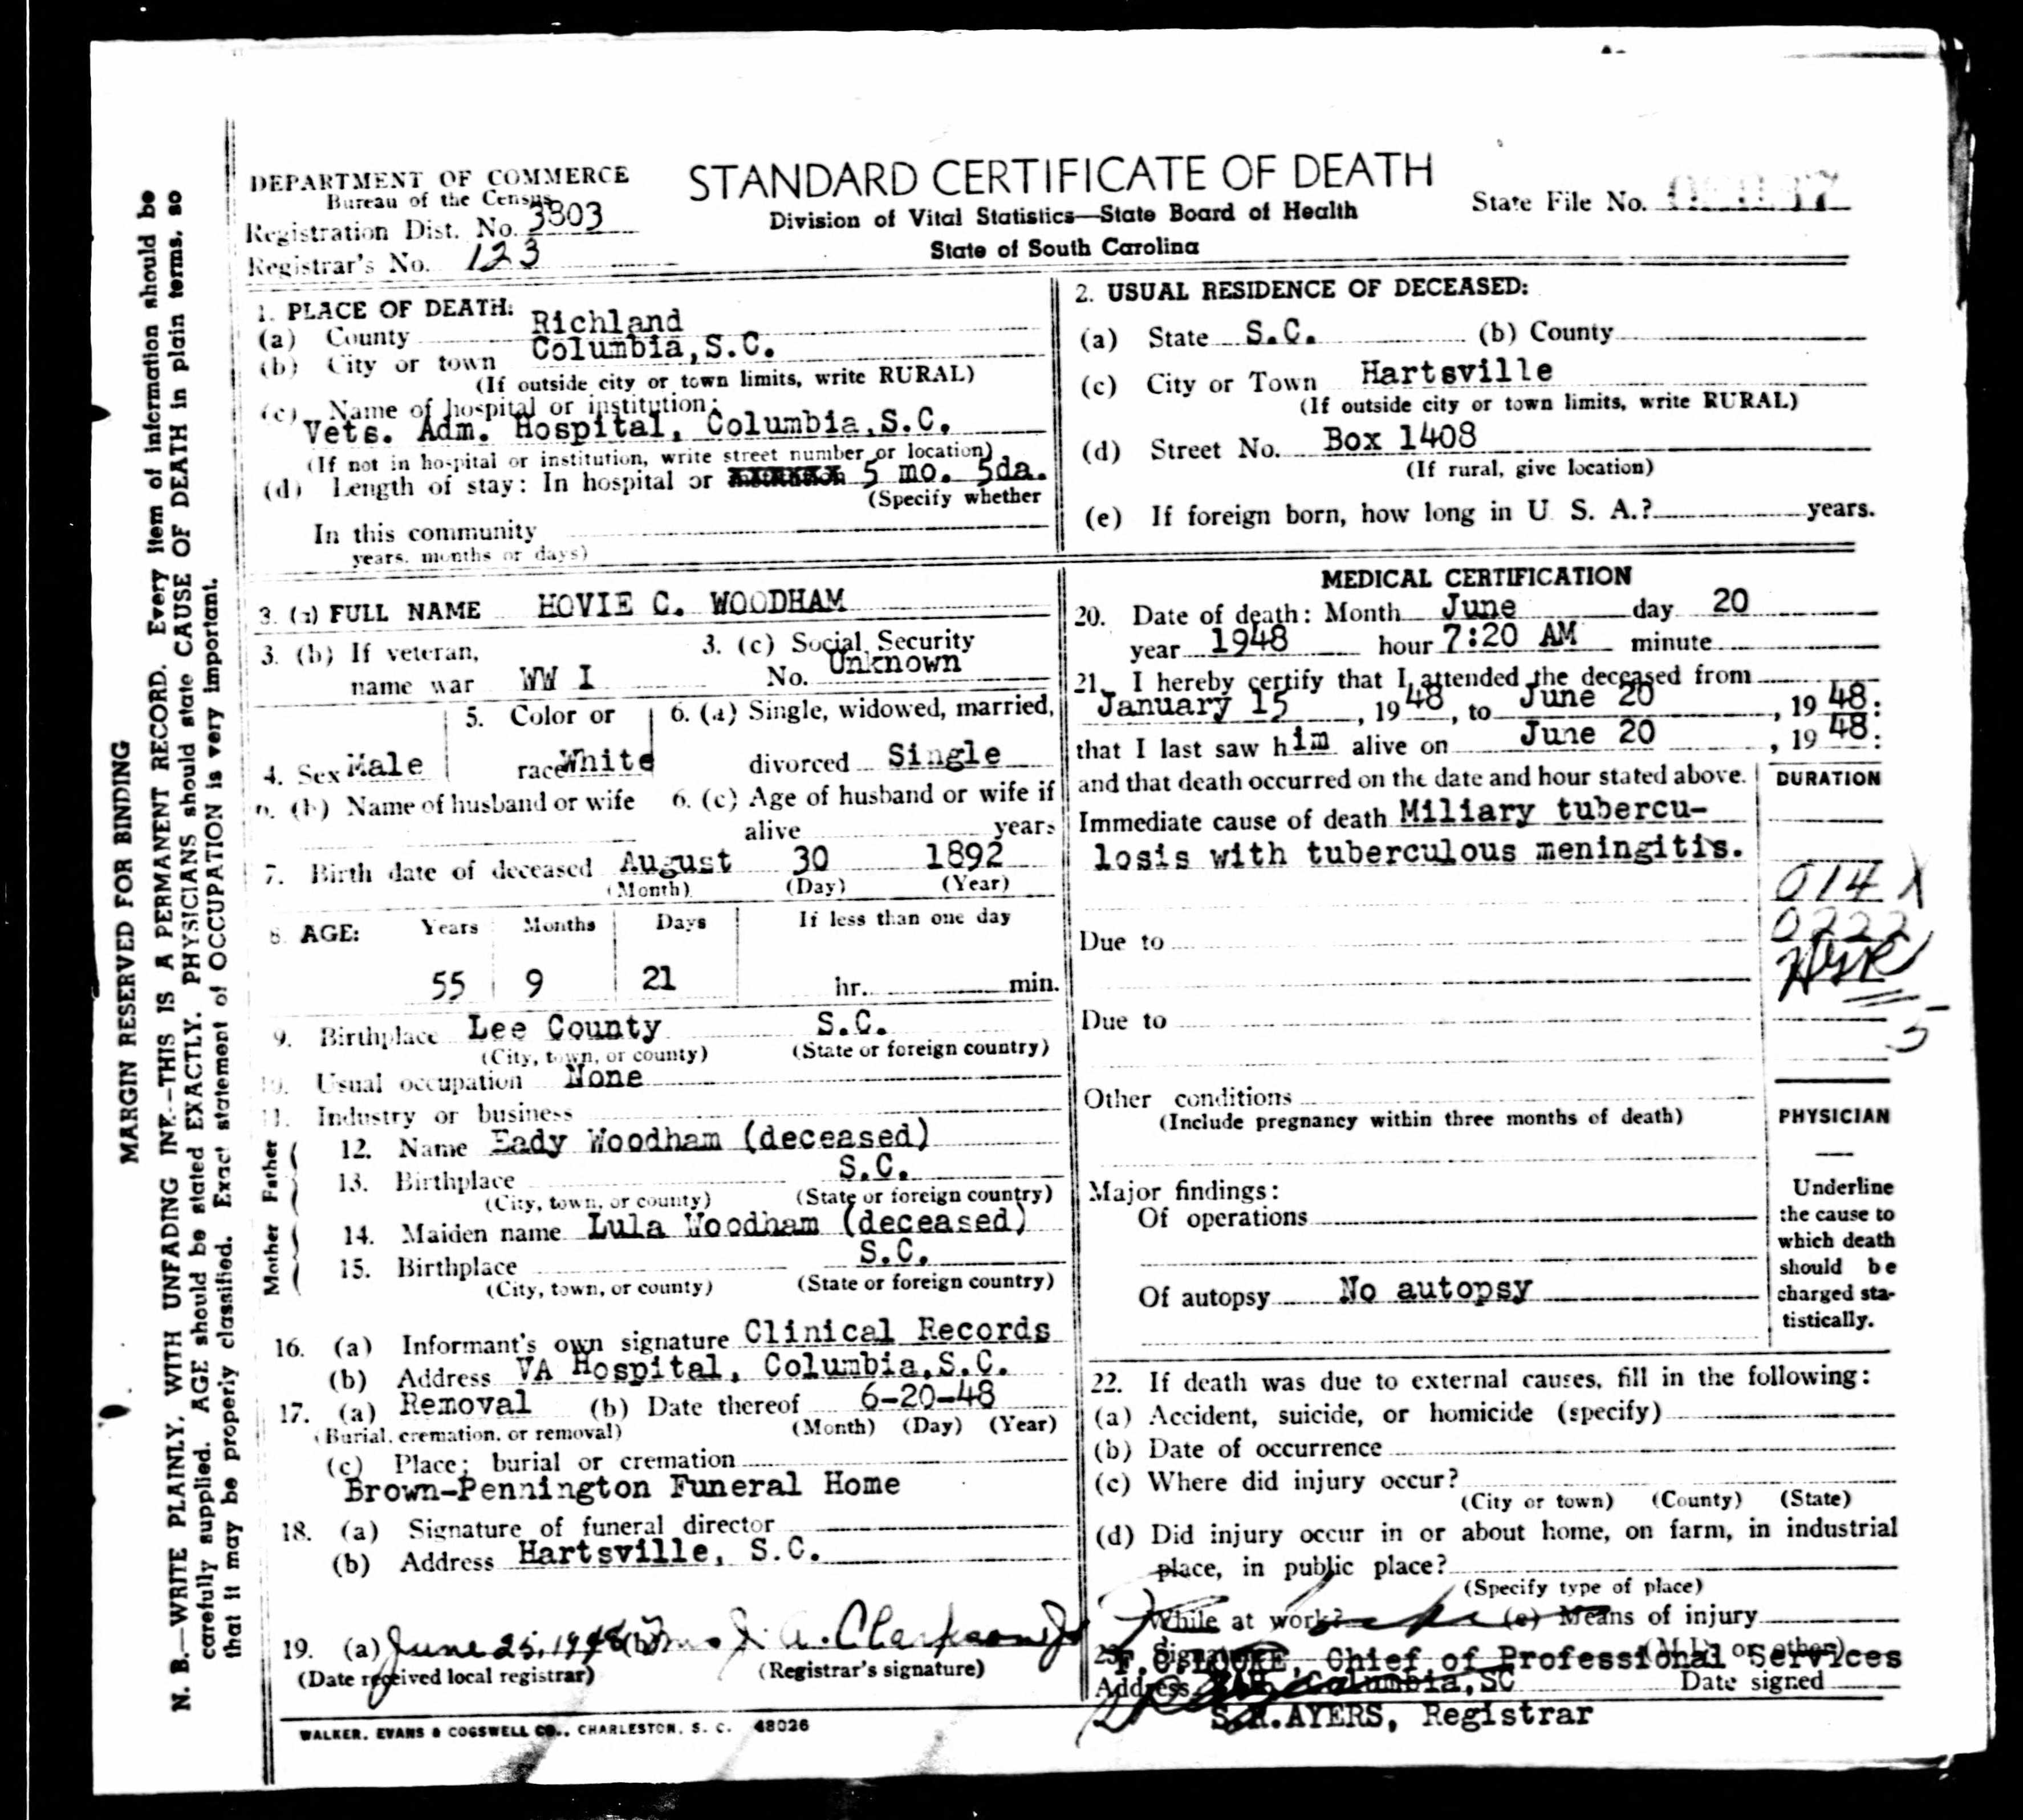 MARGIN RESERVED FOR BINDING
N. B.—WRITE PLAINLY, WITH UNFADING INK—THIS IS A PERMANENT RECORD. Every item of information should be
carefully supplied. AGE should be stated EXACTLY. PHYSICIANS should state CAUSE OF DEATH in plain terms, so
that it may be properly classified. Exact statement of OCCUPATION is very important.
DEPARTMENT OF COMMERCE
Bureau of the Census
Registration Dist. No. 3803
Registrar's No. 123
STANDARD CERTIFICATE OF DEATH
Division of Vital Statistics—State Board of Health
State of South Carolina
State File No.
1. PLACE OF DEATH:
(a) County Richland
(b) City or town Columbia,S.C.
(If outside city or town limits, write RURAL)
(c) Name of hospital or institution:
Vets. Adm. Hospital, Columbia,S.C.
(If not in hospital or institution, write street number or location)
(d) Length of stay: In hospital or 5 mo. 5da.
(Specify whether
In this community
years, months or days)
2. USUAL RESIDENCE OF DECEASED:
(a) State S.C. (b) County
(c) City or Town Hartsville
(If outside city or town limits, write RURAL)
(d) Street No. Box 1408
(If rural, give location)
(e) If foreign born, how long in U. S. A.? years.
3. (a) FULL NAME HOVIE C. WOODHAM
3. (b) If veteran,
name war WW I
3. (c) Social Security
No. Unknown
4. Sex Male
5. Color or
race White
6. (a) Single, widowed, married,
divorced Single
6. (b) Name of husband or wife
6. (c) Age of husband or wife if
alive years
7. Birth date of deceased August 30 1892
(Month) (Day) (Year)
8. AGE: Years Months Days If less than one day
55 9 21 hr. min.
9. Birthplace Lee County S.C.
(City, town, or county) (State or foreign country)
10. Usual occupation None
11. Industry or business
Father
12. Name Eady Woodham (deceased)
13. Birthplace S.C.
(City, town, or county) (State or foreign country)
Mother
14. Maiden name Lula Woodham (deceased)
15. Birthplace S.C.
(City, town, or county) (State or foreign country)
16. (a) Informant's own signature Clinical Records
(b) Address VA Hospital, Columbia,S.C.
17. (a) Removal (b) Date thereof 6-20-48
(Burial, cremation, or removal) (Month) (Day) (Year)
(c) Place; burial or cremation
Brown-Pennington Funeral Home
18. (a) Signature of funeral director
(b) Address Hartsville, S.C.
19. (a) June 25, 1948 (b) Mrs J. A. Clarkson Jr
(Date received local registrar) (Registrar's signature)
WALKER, EVANS & COGSWELL CO., CHARLESTON, S. C. 48026
MEDICAL CERTIFICATION
20. Date of death: Month June day 20
year 1948 hour 7:20 AM minute
21. I hereby certify that I attended the deceased from
January 15, 1948, to June 20, 1948:
that I last saw him alive on June 20, 1948:
and that death occurred on the date and hour stated above.
DURATION
Immediate cause of death Miliary tubercu-
losis with tuberculous meningitis.
014 X
0222
Due to
Due to
5
Other conditions
(Include pregnancy within three months of death)
Major findings:
Of operations
Of autopsy No autopsy
PHYSICIAN
Underline
the cause to
which death
should be
charged sta-
tistically.
22. If death was due to external causes, fill in the following:
(a) Accident, suicide, or homicide (specify)
(b) Date of occurrence
(c) Where did injury occur?
(City or town) (County) (State)
(d) Did injury occur in or about home, on farm, in industrial
place, in public place?
(Specify type of place)
While at work? (e) Means of injury
23. Signature (M.D. or other)
Chief of Professional Services
Address Columbia,SC Date signed
S.R.AYERS, Registrar